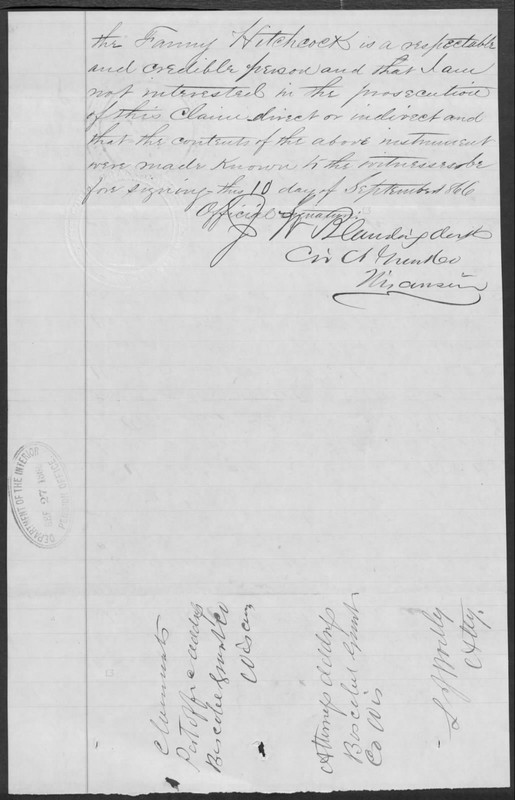 the Fanny Hitchcock is a respectable
and credible person and that I am
not interested in the prosecution
of this Claim direct or indirect and
that the contents of the above instrument
were made Known to the witnesses be
for signing this 10 day of September 1866
Official Signature:
J W Blanding Clerk
Cir Ct Grant Co
Wisconsin
DEPARTMENT OF THE INTERIOR
SEP 27
PENSION OFFICE
Claimants
Post Office address
Boscobel Grant Co
Wiscon
Attorneys address
Boscobel Grant
Co Wis
Atty.